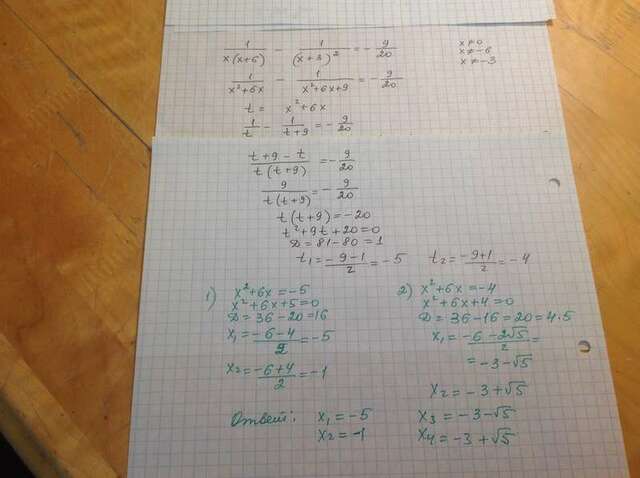 1/(x(x+6)) - 1/(x+3)² = - 9/20 x≠0
x≠-6
1/(x²+6x) - 1/(x²+6x+9) = - 9/20 x≠-3
t = x²+6x
1/t - 1/(t+9) = - 9/20
(t+9-t)/(t(t+9)) = - 9/20
9/(t(t+9)) = - 9/20
t(t+9) = -20
t²+9t+20=0
D = 81-80 = 1
t₁ = (-9-1)/2 = -5 t₂ = (-9+1)/2 = -4
1) x²+6x=-5
x²+6x+5=0
D = 36-20=16
x₁ = (-6-4)/2 = -5
x₂ = (-6+4)/2 = -1
2) x²+6x=-4
x²+6x+4=0
D = 36-16=20=4·5
x₁ = (-6-2√5)/2 =
= -3-√5
x₂ = -3+√5
Ответ: x₁ = -5 x₃ = -3-√5
x₂ = -1 x₄ = -3+√5